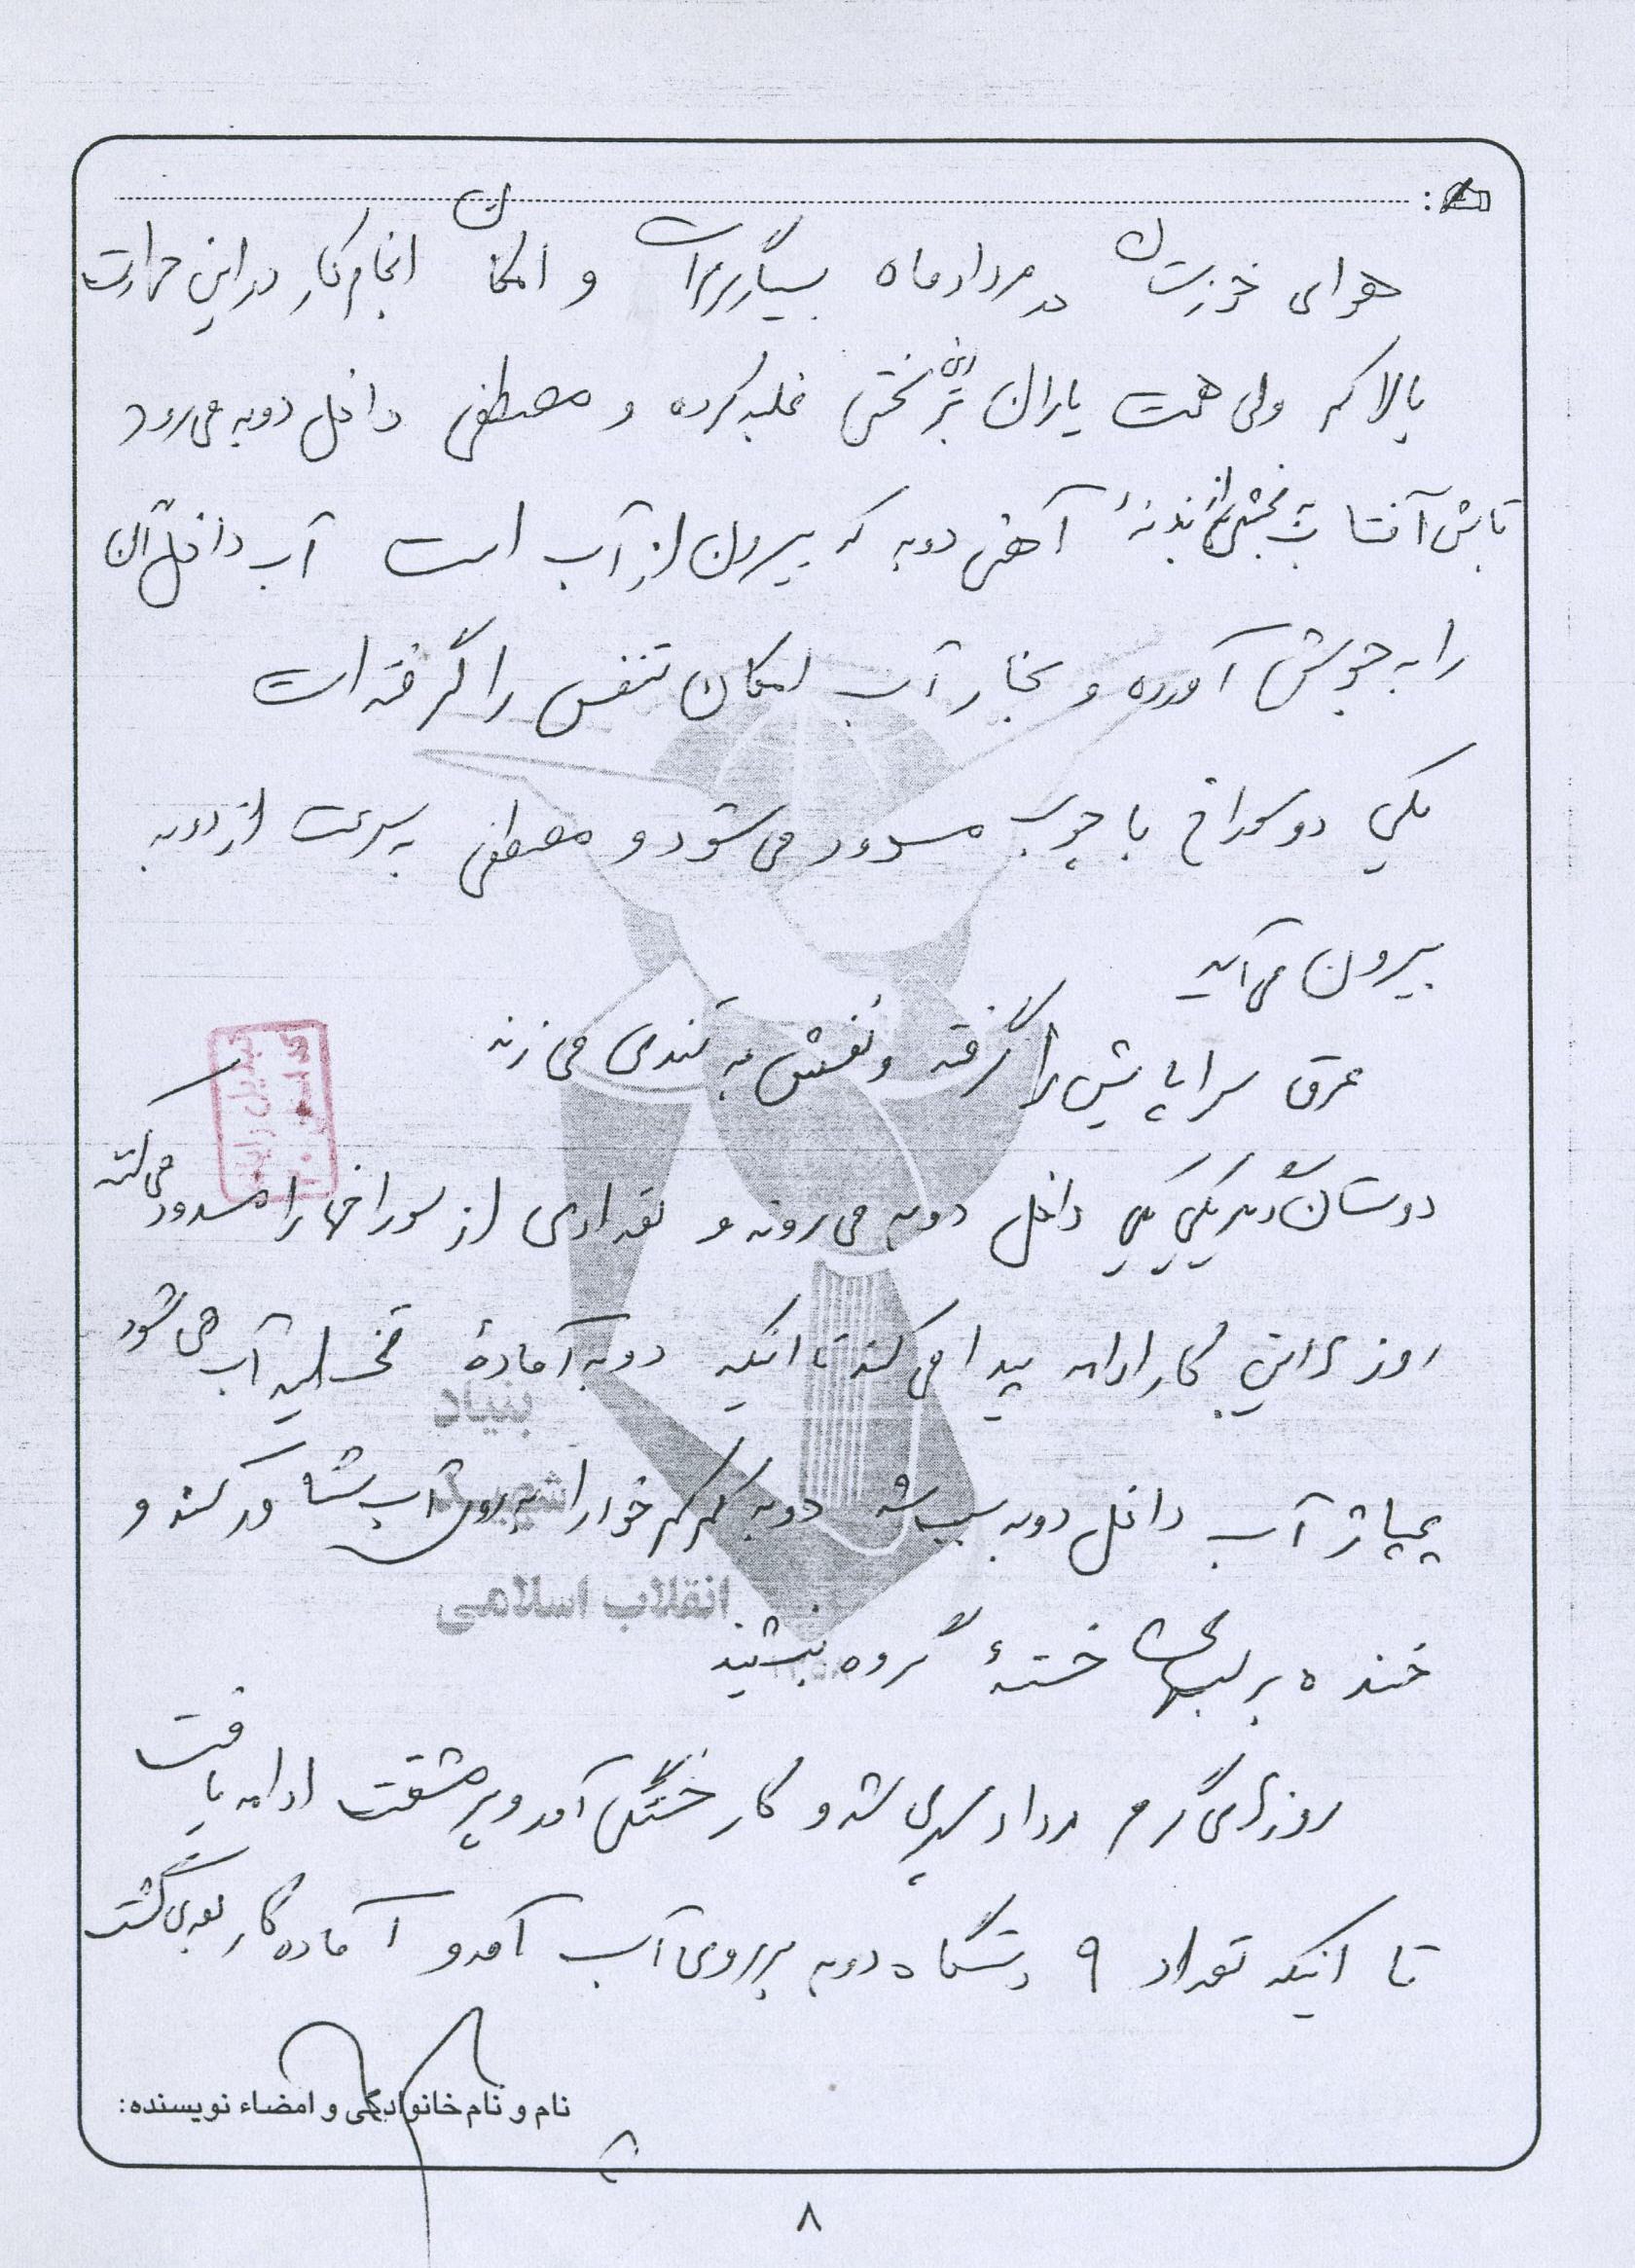 هوای خوزستان در مرداد ماه بسیار گرم است و امکان انجام کار در این حرارت
بالا کم ولی همت یاران بر این سختی غلبه کرده و مصطفی داخل دوبه می رود
تابش آفتاب به بخشی از بدنهٔ آهنی دوبه که بیرون از آب است آب داخل آن
را به جوش آورده و بخار آب امکان تنفس را گرفته است
یکی دو سوراخ با چوب مسدود می شود و مصطفی به سرعت از دوبه
بیرون می آید
عرق سراپایش را گرفته و نفسش به تندی می زند
دوستان دیگر یکی یکی داخل دوبه می روند و تعدادی از سوراخها را مسدود می کنند
روزها این کار ادامه پیدا می کند تا اینکه دوبه آمادهٔ تخلیه آب می شود
پمپاژ آب داخل دوبه سبب شد دوبه کم کم خود را به روی آب شناور کند و
خنده بر لبهای خستهٔ گروه بنشیند
روزهای گرم مرداد سپری شد و کار خستگی آور و پر مشقت ادامه یافت
تا اینکه تعداد ۹ دستگاه دوبه بر روی آب آمد و آماده کار بعدی گشت
بنیاد
شهید
انقلاب اسلامی
نام و نام خانوادگی و امضاء نویسنده:
۸